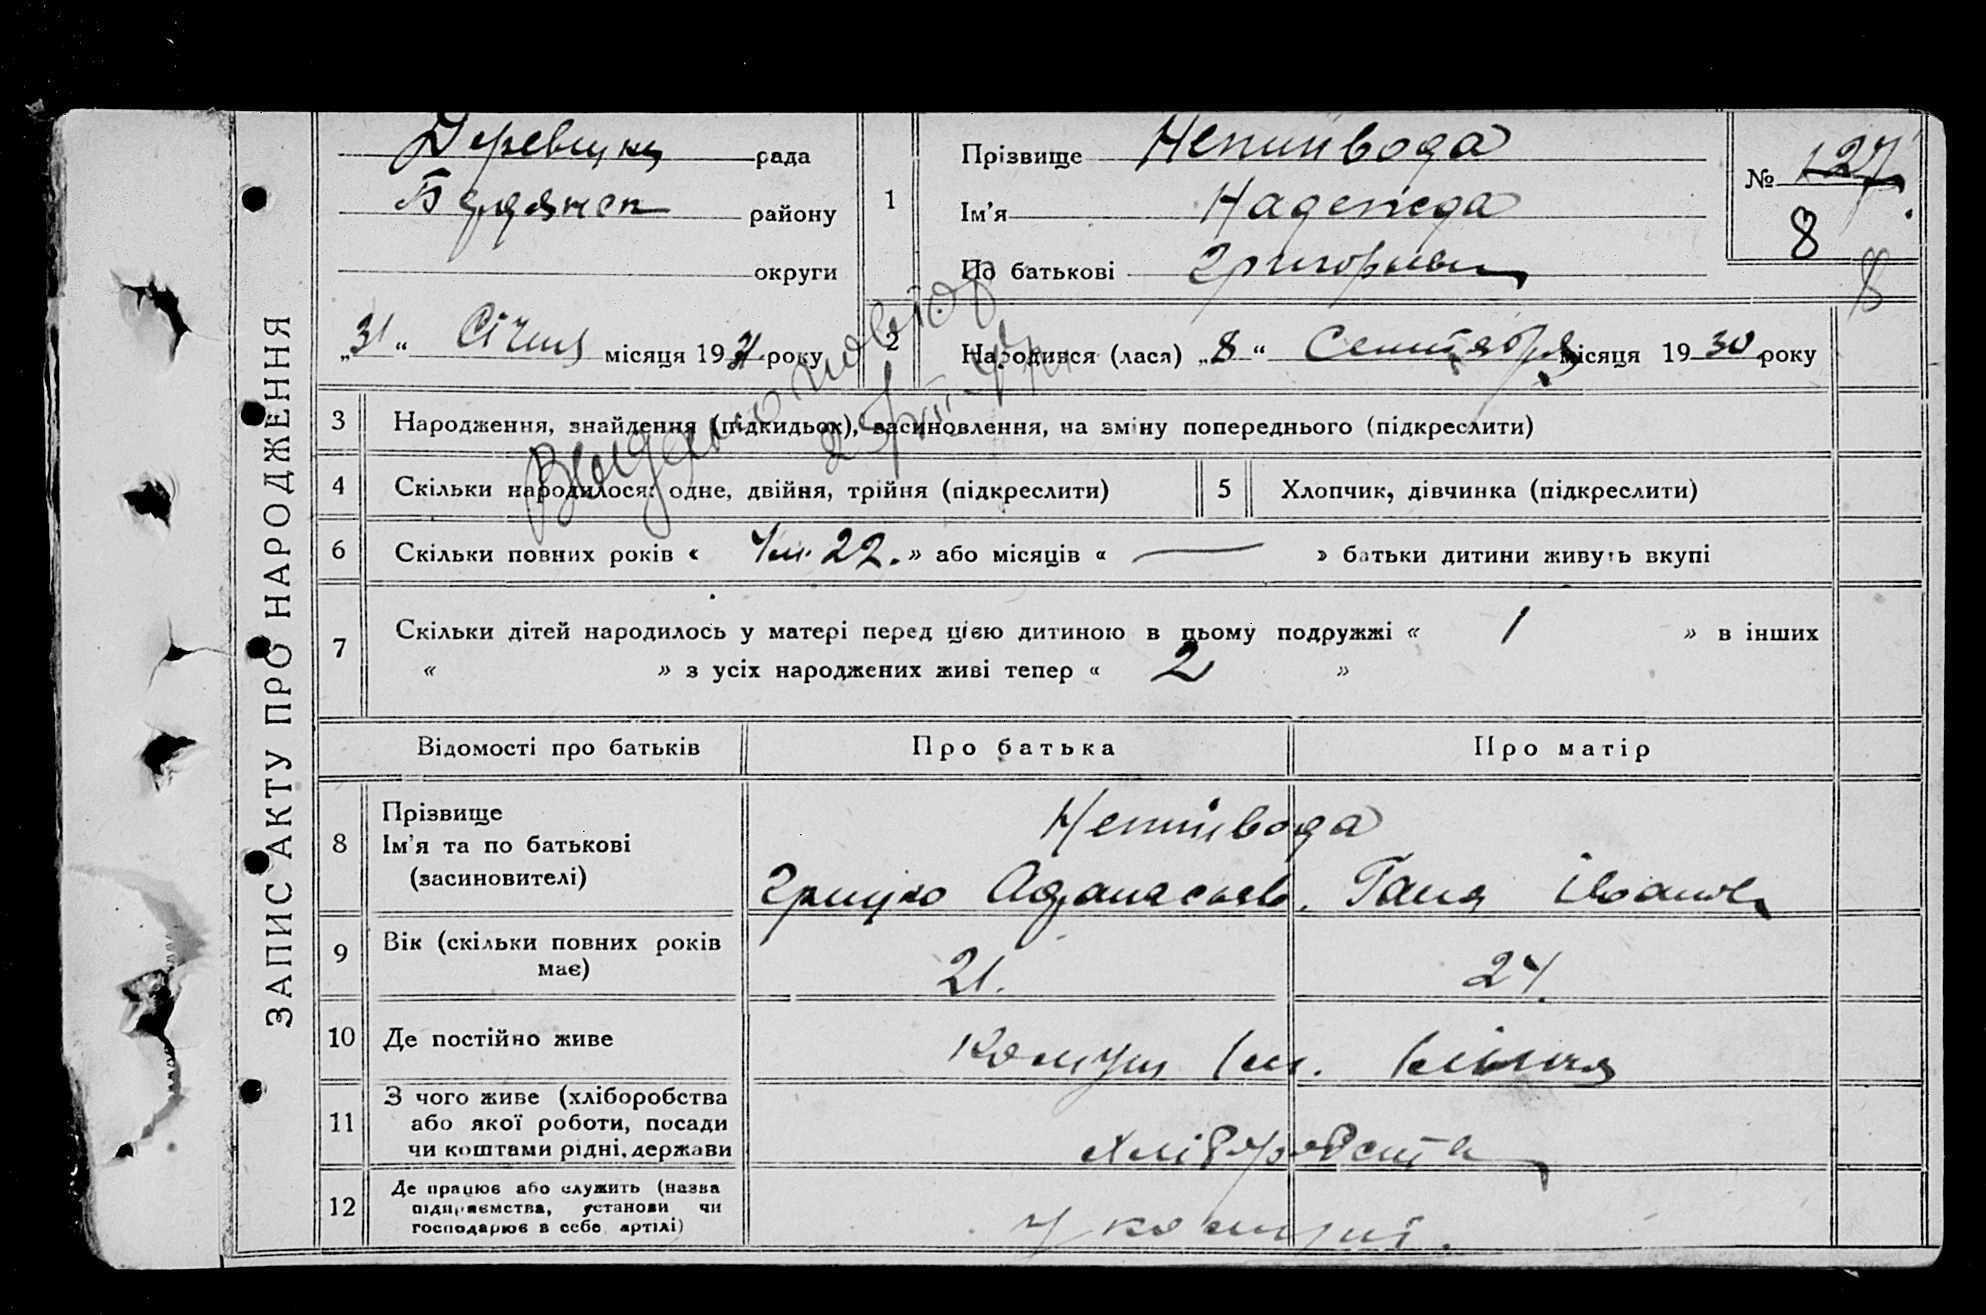 ЗАПИС АКТУ ПРО НАРОДЖЕННЯ
рада
району
округи
„31“ Січня місяця 1931 року
1
Прізвище Непийвода
Ім'я Надежда
По батькові Григорьевн
№ 127
8
8
2
Народився (лася) „8“ Сентября місяця 1930 року
3 Народження, знайдення (підкидьок), засиновлення, на зміну попереднього (підкреслити)
4 Скільки народилося: одне, двійня, трійня (підкреслити)
5 Хлопчик, дівчинка (підкреслити)
6 Скільки повних років « » або місяців « — » батьки дитини живуть вкупі
7 Скільки дітей народилось у матері перед цією дитиною в цьому подружжі « 1 » в інших
« » з усіх народжених живі тепер « 2 »
Відомості про батьків
Про батька
Про матір
8 Прізвище
Ім'я та по батькові
(засиновителі)
Непийвода
Грицко Афанасьев. Ганя Іванов
9 Вік (скільки повних років має)
21.
24.
10 Де постійно живе
Комун Ім. Леніна
11 З чого живе (хліборобства
або якої роботи, посади
чи коштами рідні, держави
Хліборобства
12 Де працює або служить (назва
підприємства, установи чи
господарює в себе, артілі)
у комуні.